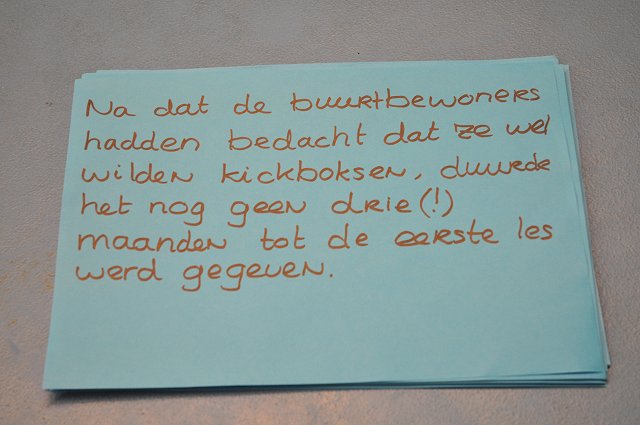 Na dat de buurtbewoners
hadden bedacht dat ze wel
wilden kickboksen, duurde
het nog geen drie(!)
maanden tot de eerste les
werd gegeven.